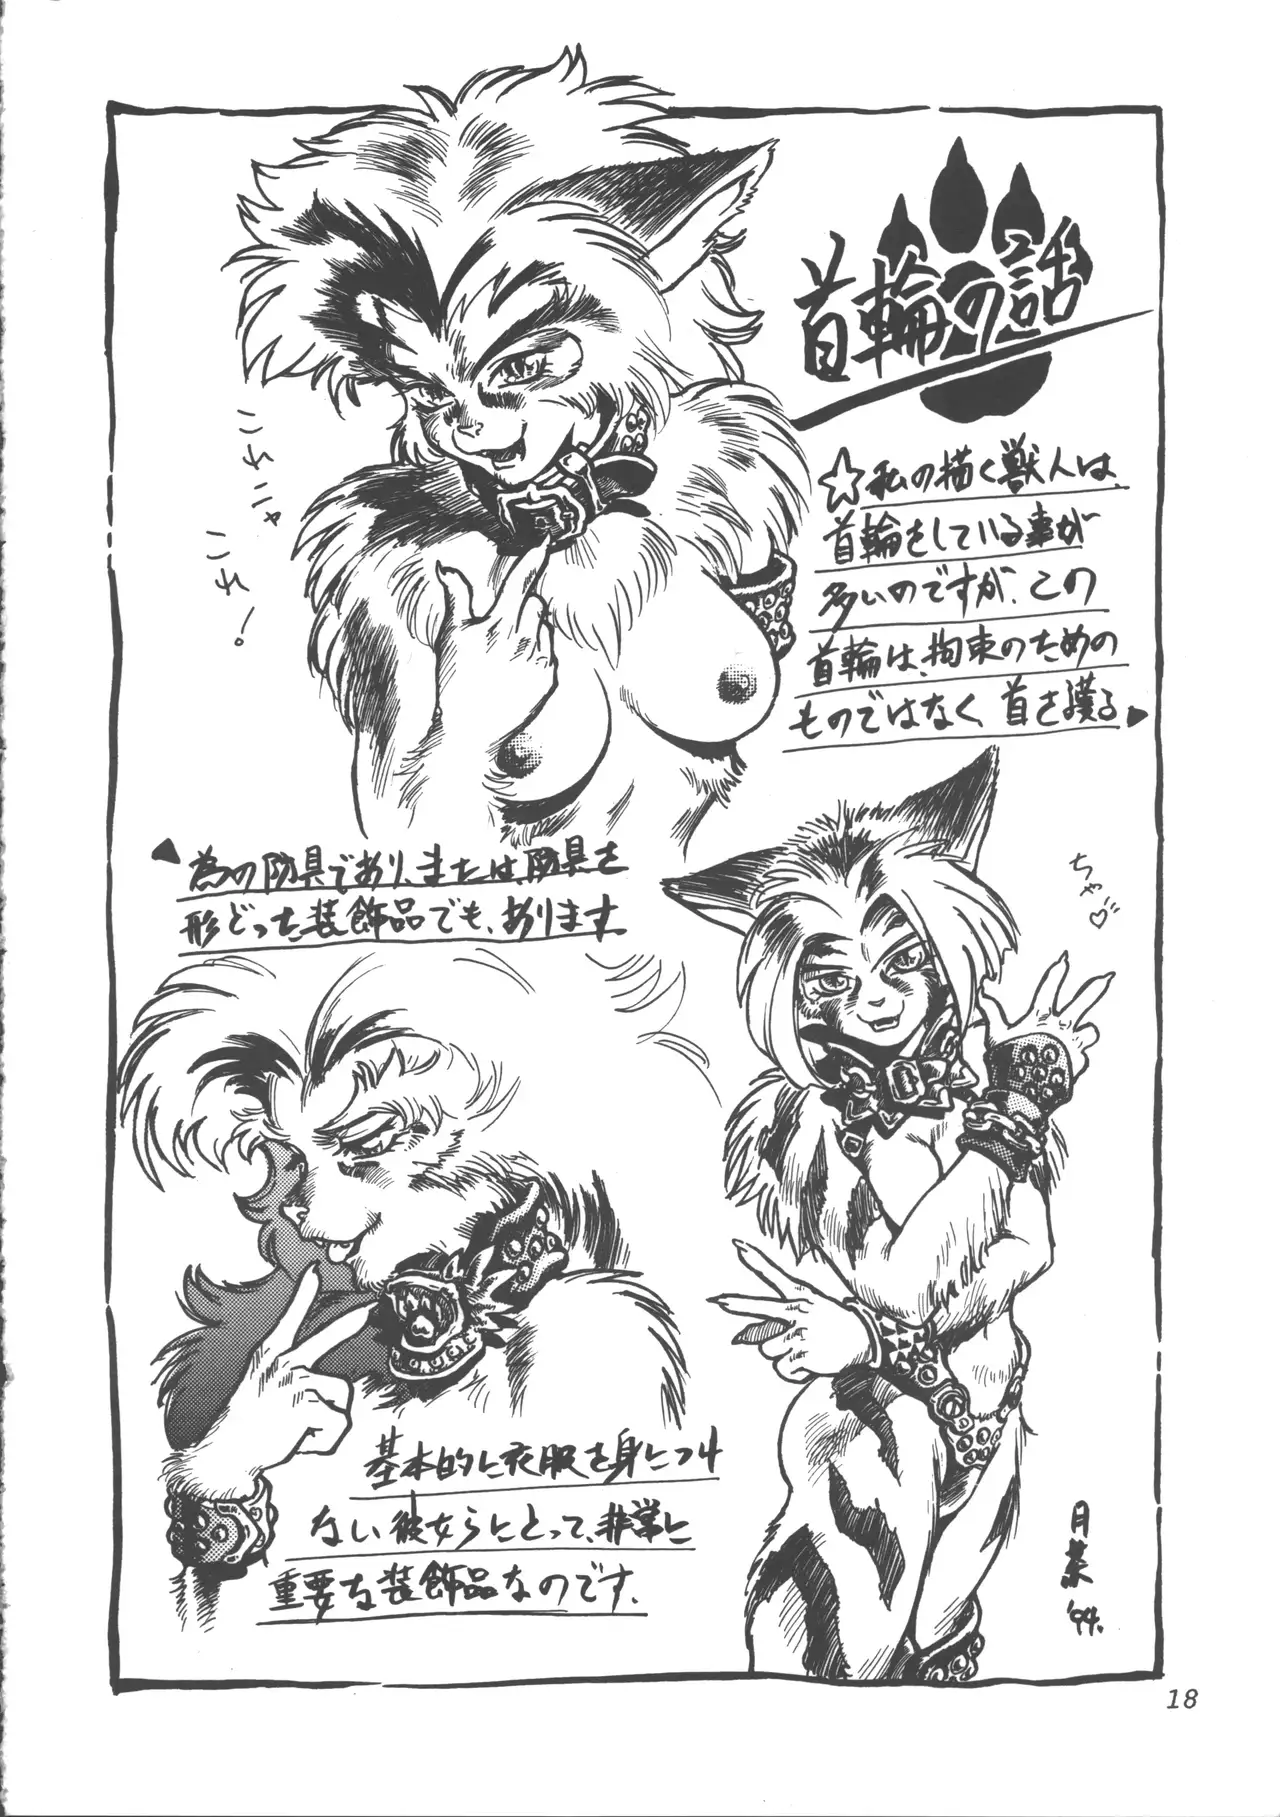 首輪の話
☆私の描く獣人は、
首輪をしている事が
多いのですが、この
首輪は、拘束のための
ものではなく、首を護る▶
▶為の防具であり、または、防具を
形どった装飾品でも、あります
コチニャ
コチ!
ちゃ♡
基本的に衣服を身につけ
ない彼女らにとって、非常に
重要な装飾品なのです.
'94.
18